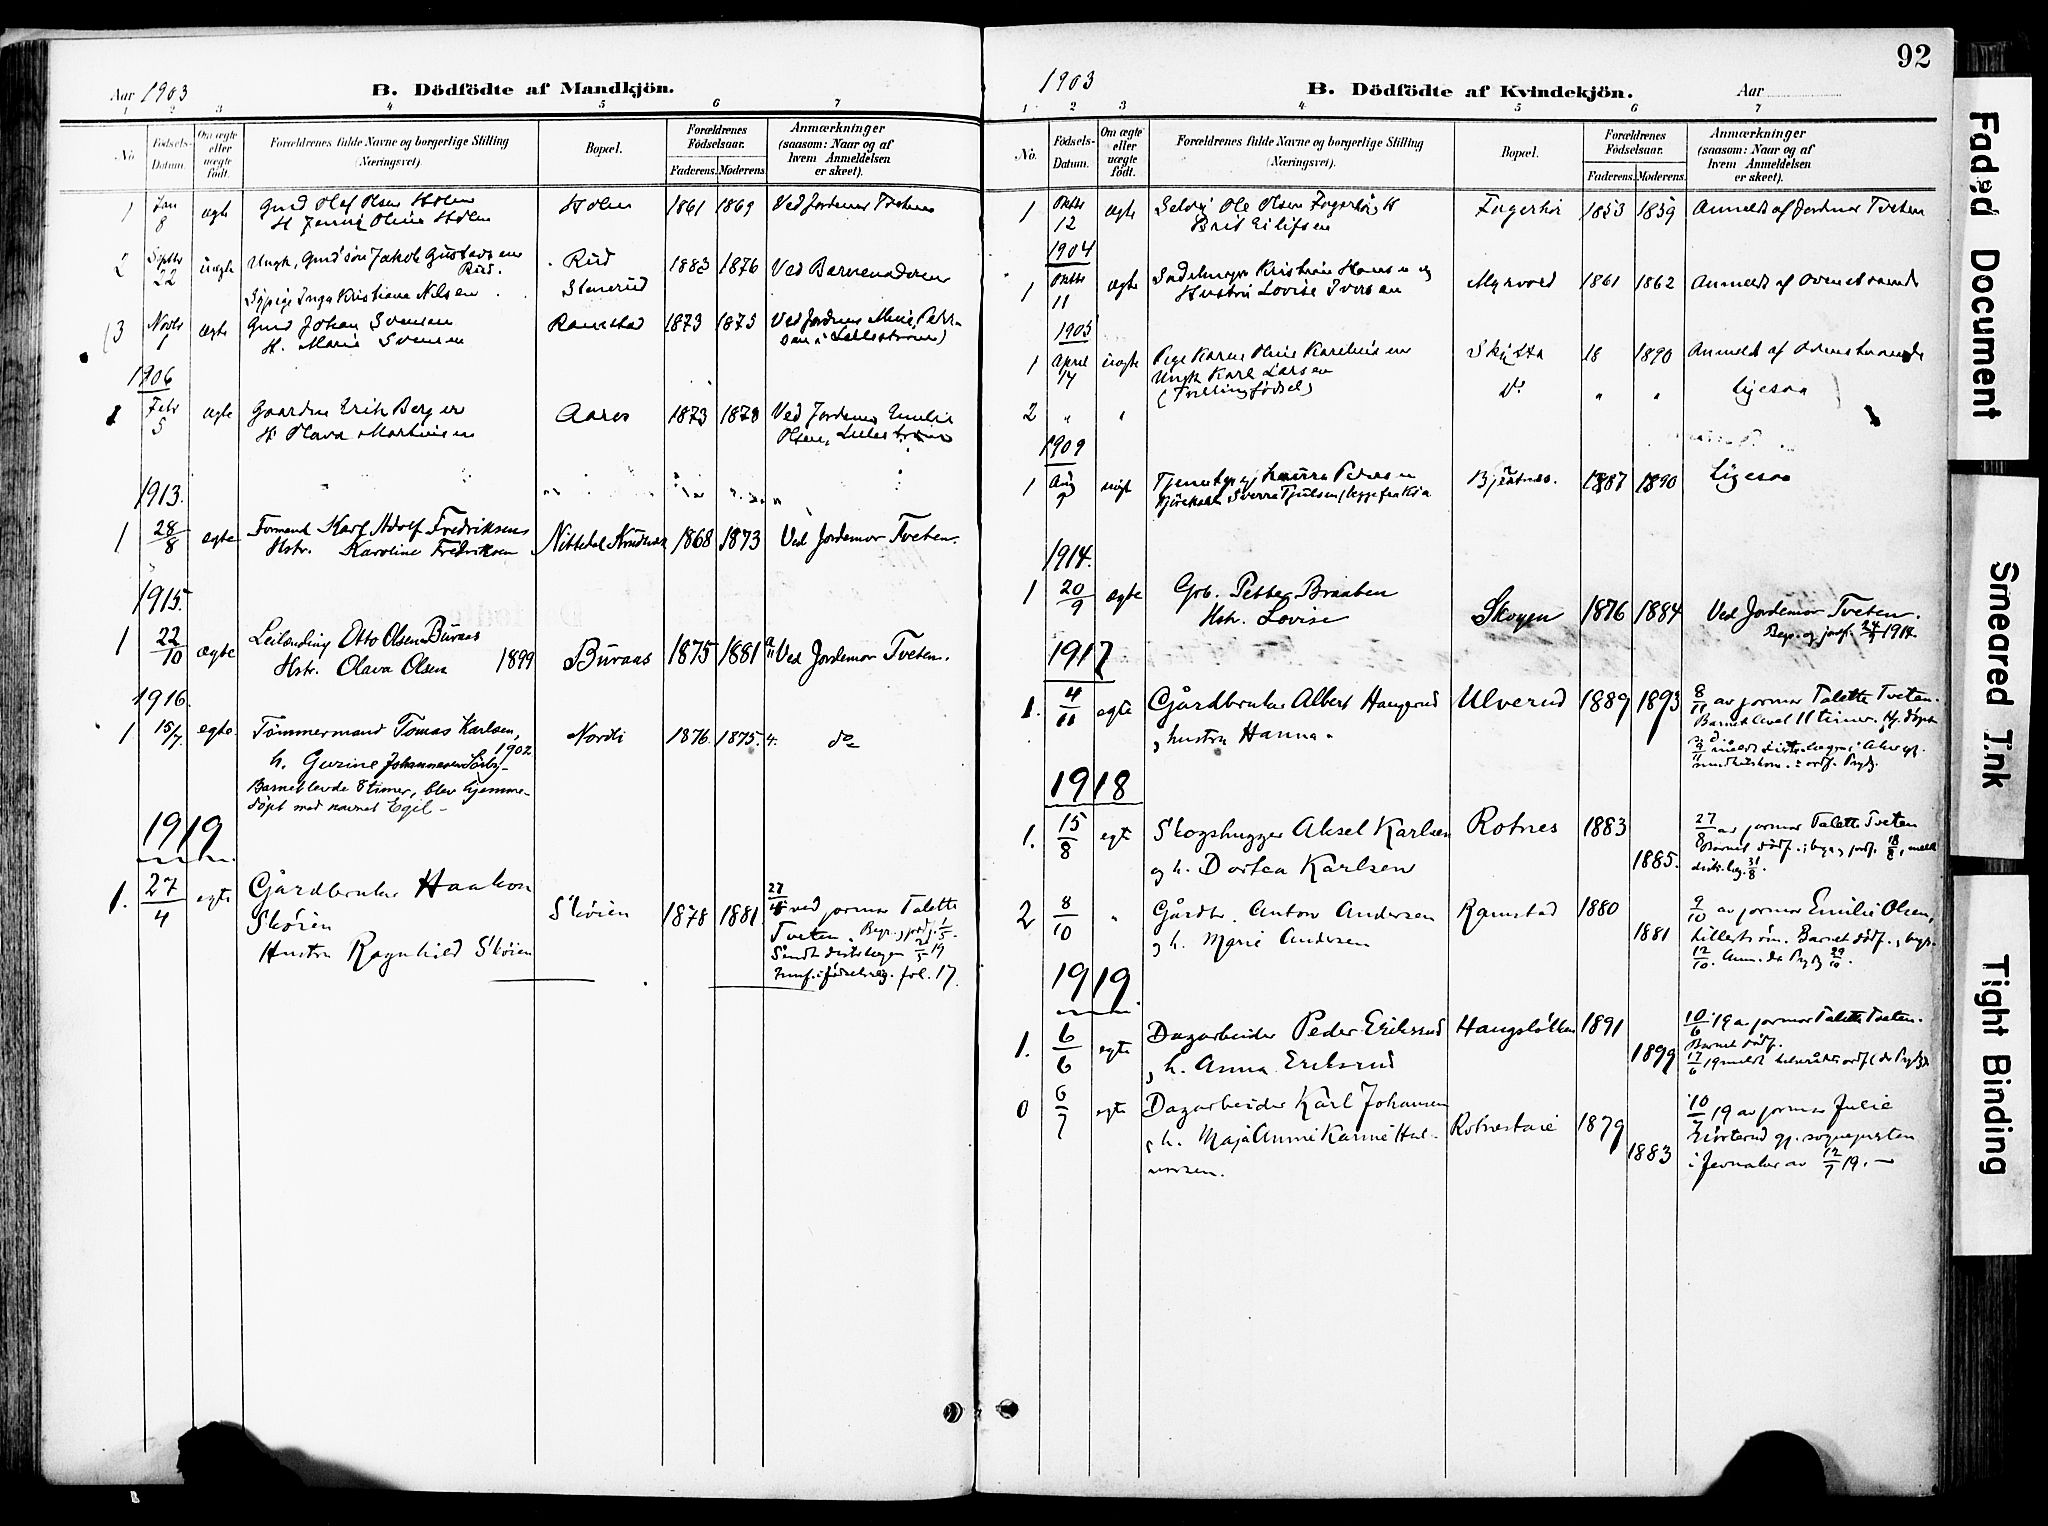 Aar 1903
B. Dödfödte af Mandkjön.
1 2 3 4 5 6 7
No
Födsels-Datum.
Om ægte eller uægte födt.
Forældrenes fulde Navne og borgerlige Stilling
(Næringsvei).
Bopæl.
Forældrenes Födselsaar.
Faderens. Moderens.
Anmærkninger
(saasom: Naar og af
hvem Anmeldelsen
er skeet).
1 Jan 8 ægte Gmd Olaf Olsen Holen Holen 1861 1869 Ved Jordemor Tveten
H Jenny Oline Holen
2 Septbr 22 uægte Ungk, Gmd søn Jakob Gustavsen Rud. Rud 1883 1876 Ved Barnemoderen
Sypige Inga Kristiane Nilsen Stenerud
3 Novbr 1 ægte Gmd Johan Svensen Ramstad 1873 1873
H. Marie Svensen
1906
1 Febr 5 ægte Gaardbr Erik Berger Aaros 1873 1873 Ved Jordemor Emilie
H Olava Martinsen Olsen, Lillestrøm
1913.
1 28/8 ægte Formand Karl Adolf Fredriksen 1868 1873 Ved Jordemor Tveten.
Hstr. Karoline Fredriksen
1915.
1 22/10 ægte Leilending Otto Olsen Buraas Buraas 1875 1881 Ved Jordemor Tveten.
Hstr. Olava Olsen 1899
1916.
1 15/7 egte Tømmermand Tomas Karlsen, Nordli 1876. 1875. 4. do
1902
h. Gurine Johannesen Sørby
Barnet levde 8 timer, blev hjemme-
døpt med navnet Egil -
1919
1. 27/4 egte Gårdbruker Haakon Skøien 1878 1881 27/4 ved jormor Talette
Skøien Tveten. Begr. og jordf. 1/5.
Hustru Ragnhild Skøien Sendt distrlægen 2/5 19
fol. 17.
92
1903
B. Dödfödte af Kvindekjön.
Aar
1 2 3 4 5 6 7
No.
Födsels-Datum.
Om ægte eller uægte födt.
Forældrenes fulde Navne og borgerlige Stilling
(Næringsvei).
Bopæl.
Forældrenes Födselsaar.
Faderens. Moderens.
Anmærkninger
(saasom: Naar og af
hvem Anmeldelsen
er skeet).
1 Oktbr 12 ægte Selvej Ole Olsen 1853 1859 Anmeldt af Jordmor Tveten
Brit Eilifsen
1904
1 Oktbr 11 ægte Sadelmager Kristian Hansen og Myrvold 1861 1862 Anmeldt af Ovenstaaende
Hustru Lovise Iversen
1905
1 April 14 uægte Pige Karen Oline Karelius en Skytta 18 1890 Anmeldt af Ovenstaaende
Ungk Karl Larsen
(Tvillingfødsel) do " " ligesaa
2 " "
1909
1 Aug 9 uægt Tjenestepige Laura Petersen Bjertnæs. 1887 1890 Ligesaa
Kjørekarl Sverre Tjulsen,
1914.
1 20/9 ægte Grb. Petter Braaten Skogen 1876 1884 Ved Jordemor Tveten.
Hstr. Lovise Begr. og jordf. 24/9 1914.
1917
1. 4/11 egte Gårdbruker Albert Haugerud Ulverud 1889 1893 8/11 av jormor Talette Tveten.
, hustru Hanna. Barnet levet 11 timer. Hj. døpt
1918
1. 15/8 egt Skogshugger Aksel Karlsen Rotnes 1883 27/8 av jormor Talette Tveten
og h. Dortea Karlsen 1885. Barnet dødf., begr. jordf. 18/8, meldt
distr.læg. 31/8.
2 8/10 " Gårdbr. Anton Andersen Ramstad 1880 9/10 av jormor Emilie Olsen,
og h. Marie Andersen 1881 Lillestrøm. Barnet dødf., begr.
12/10. Anm. 29/10.
1919.
1. 6/6 egte Dagarbeider Peder Eriksrud Haugsløkken 1891 10/6 19 av jormor Talette Tveten.
, h. Anna Eriksrud 1899 Barnet dødf.
0 6/7 egte Dagarbeider Karl Johansen Rotnestaie 1879 10/7 19 av jormor Julie
, h. Maja Anna Hal- 1883 gj. sognepresten
vorsen. i Jevnaker av 12/7 19. -
Faded Document
Smeared Ink
Tight Binding